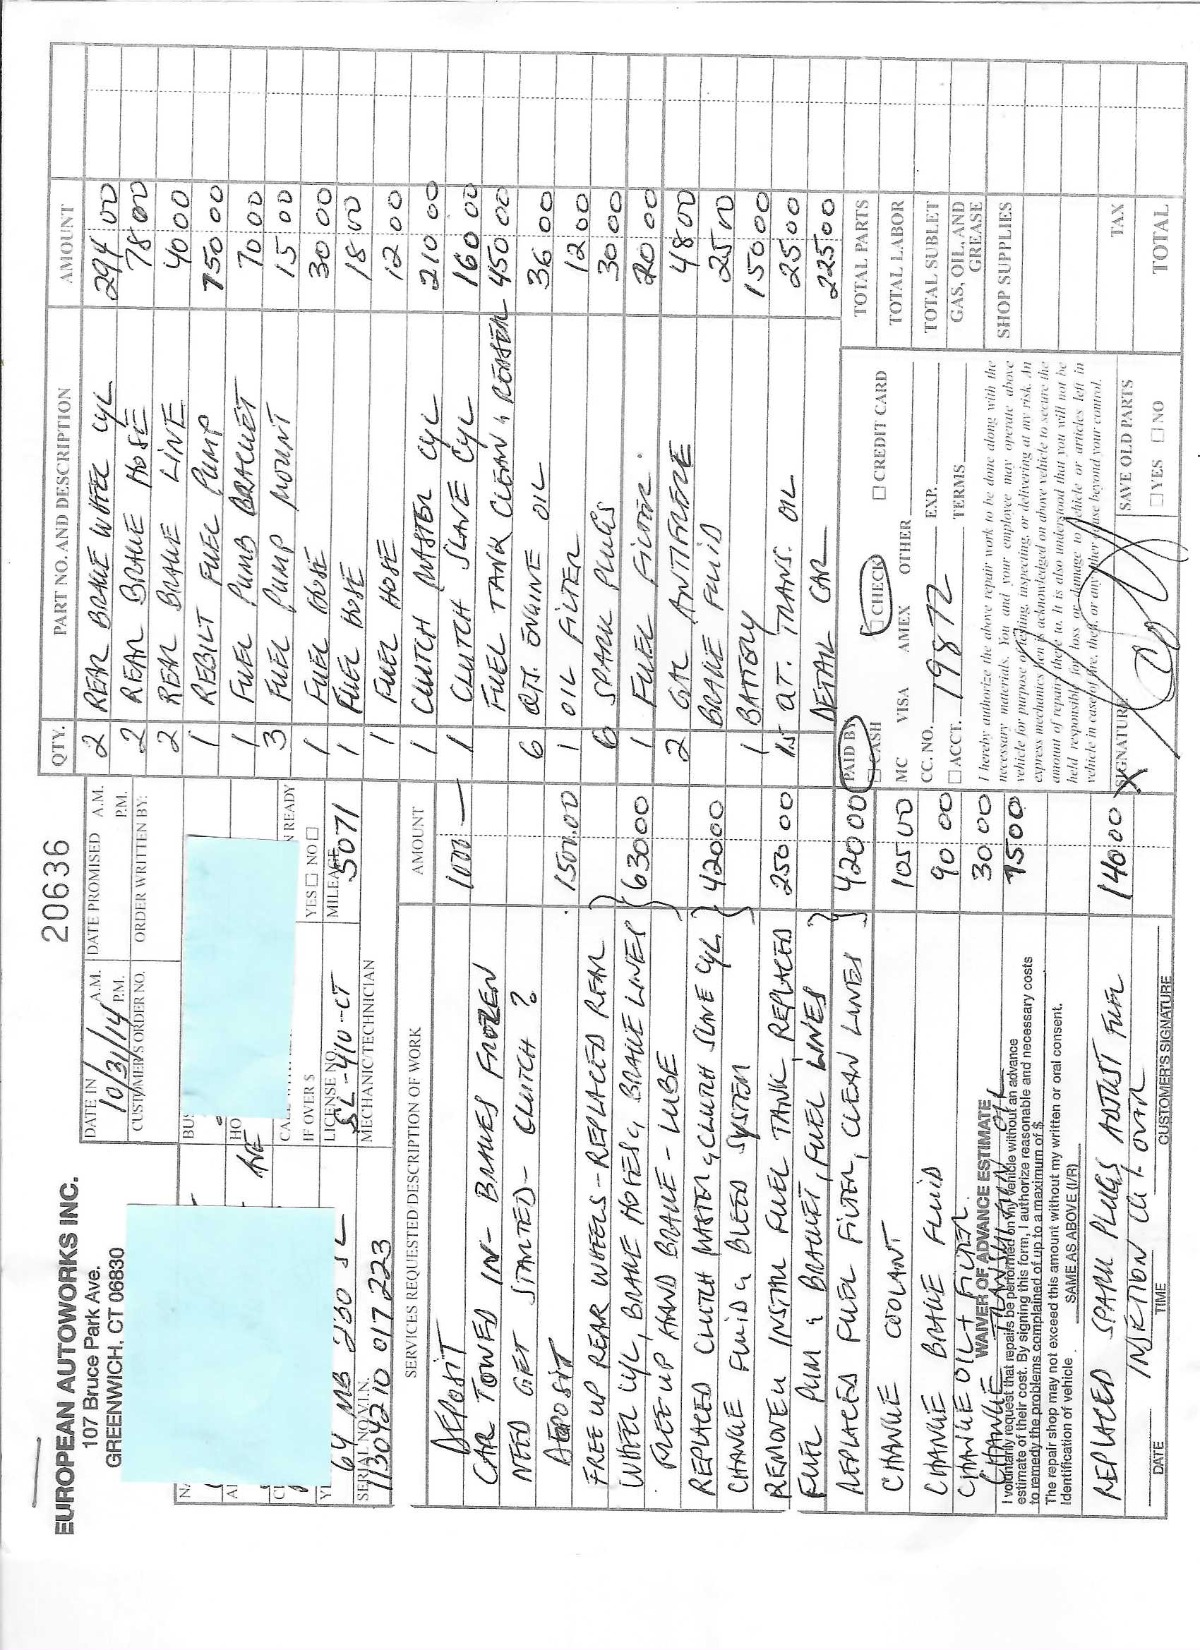 EUROPEAN AUTOWORKS INC.
107 Bruce Park Ave.
GREENWICH, CT 06830
20636
DATE IN
10/31/14
A.M.
P.M.
DATE PROMISED
A.M.
P.M.
CUSTOMER'S ORDER NO.
ORDER WRITTEN BY:
BUS
HO
AVE
N READY
IF OVER $
YES ☐ NO ☐
64 MB 230 SL
LICENSE NO.
SL-410-CT
MILEAGE
5071
SERIAL NO./V.I.N.
113042 10 017223
MECHANIC/TECHNICIAN
SERVICES REQUESTED/DESCRIPTION OF WORK
AMOUNT
DEPOSIT 1000 —
CAR TOWED IN - BRAKES FROZEN
NEED GET STARTED - CLUTCH ?
DEPOSIT 1500.00
FREE UP REAR WHEELS - REPLACED REAR
WHEEL CYL, BRAKE HOSES & BRAKE LINES } 630 00
FREE UP HAND BRAKE - LUBE
REPLACED CLUTCH MASTER & CLUTCH SLAVE CYL. } 420 00
CHANGE FLUID & BLEED SYSTEM
REMOVED INSTALL FUEL TANK, REPLACED 250 00
FUEL PUMP & BRACKET, FUEL LINES
REPLACED FUEL FILTER, CLEAN LINES } 420 00
CHANGE COOLANT 105 00
CHANGE BRAKE FLUID 90 00
CHANGE OIL + FILTER 30 00
CHANGE TRANSMISSION OIL 75 00
WAIVER OF ADVANCE ESTIMATE
I voluntarily request that repairs be performed on my vehicle without an advance
estimate of their cost. By signing this form, I authorize reasonable and necessary costs
to remedy the problems complained of up to a maximum of $
The repair shop may not exceed this amount without my written or oral consent.
Identification of vehicle
SAME AS ABOVE (I/R)
REPLACED SPARK PLUGS ADJUST FUEL 140 00
DATE
TIME
CUSTOMER'S SIGNATURE
QTY. PART NO. AND DESCRIPTION AMOUNT
2 REAR BRAKE WHEEL CYL 294 00
2 REAR BRAKE HOSE 78 00
2 REAR BRAKE LINE 40 00
1 REBILT FUEL PUMP 750 00
1 FUEL PUMB BRACKET 70 00
3 FUEL PUMP MOUNT 15 00
1 FUEL HOSE 30 00
1 FUEL HOSE 18 00
1 FUEL HOSE 12 00
1 CLUTCH MASTER CYL 210 00
1 CLUTCH SLAVE CYL 160 00
FUEL TANK CLEAN & 450 00
6 QTS. ENGINE OIL 36 00
1 OIL FILTER 12 00
6 SPARK PLUGS 30 00
1 FUEL FILTER 20 00
2 GAL ANTIFREEZE 48 00
BRAKE FLUID 25 00
1 BATTERY 150 00
QT. TRANS. OIL 25 00
DETAIL CAR 225 00
PAID BY
☐ CASH
☐ CHECK
☐ CREDIT CARD
MC VISA AMEX OTHER
CC. NO. EXP.
19872
☐ ACCT. TERMS
TOTAL PARTS
TOTAL LABOR
TOTAL SUBLET
GAS, OIL, AND GREASE
SHOP SUPPLIES
I hereby authorize the above repair work to be done along with the
necessary materials. You and your employee may operate above
vehicle for purpose of testing, inspecting, or delivering at my risk. An
express mechanics lien is acknowledged on above vehicle to secure the
amount of repairs there to. It is also understood that you will not be
held responsible for loss or damage to vehicle or articles left in
vehicle in case of fire, theft, or any other cause beyond your control.
X SIGNATURE
SAVE OLD PARTS
☐ YES ☐ NO
TAX
TOTAL